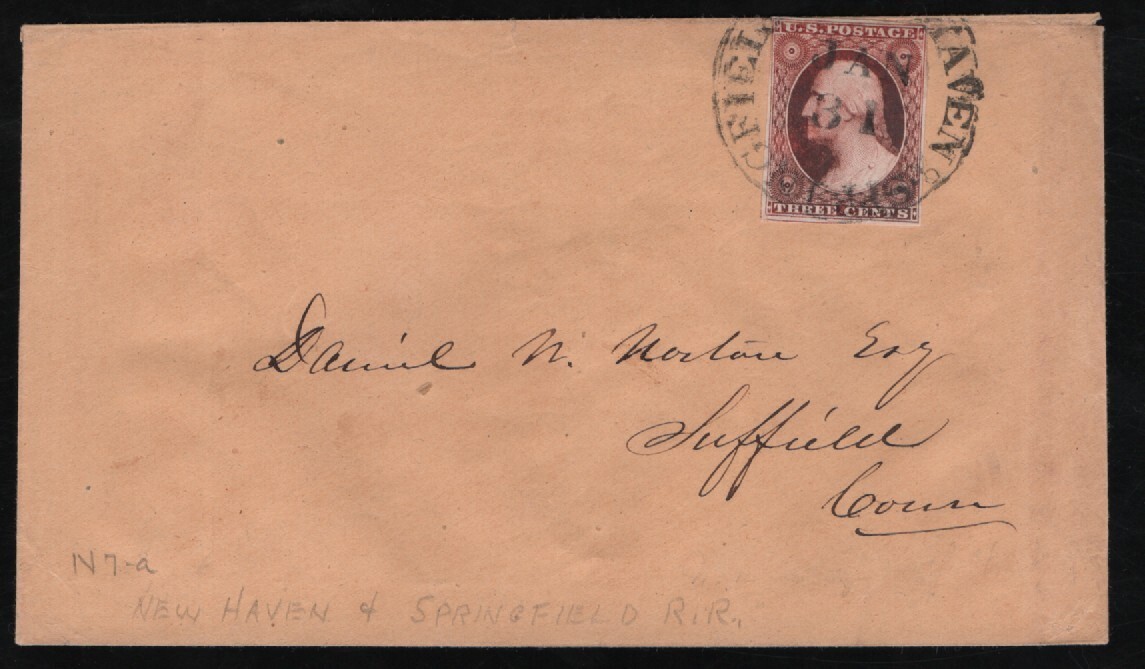 U.S. POSTAGE
JAN
31
THREE CENTS
HAVEN &
GFIEL
Daniel W. Norton Esq
Suffield
Conn
N7-a
NEW HAVEN & SPRINGFIELD R.R.